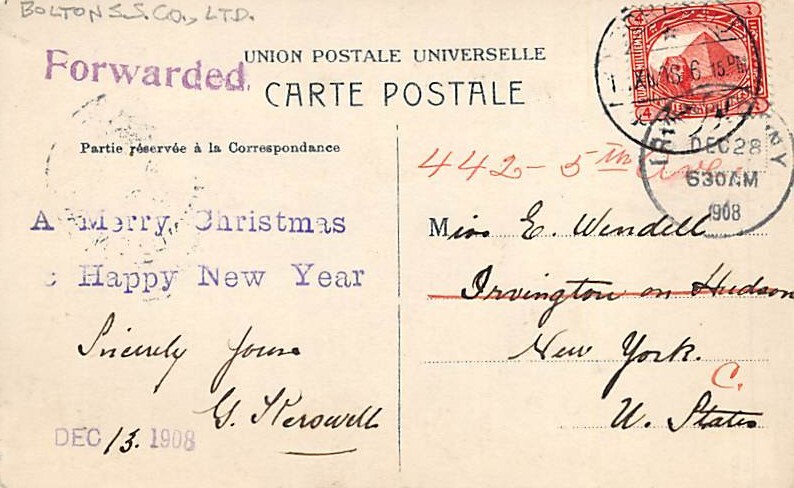 BOLTON S.S. CO., LTD.
Forwarded
UNION POSTALE UNIVERSELLE
CARTE POSTALE
Partie réservée à la Correspondance
XII 08 6 15 PM
DEC 28
630 AM
1908
NY
442 - 5th Ave
A Merry Christmas
& Happy New Year
Sincerely yours
G. Kerswell
DEC 13. 1908
Miss E. Wendell
Irvington on Hudson
New York.
C.
U. States